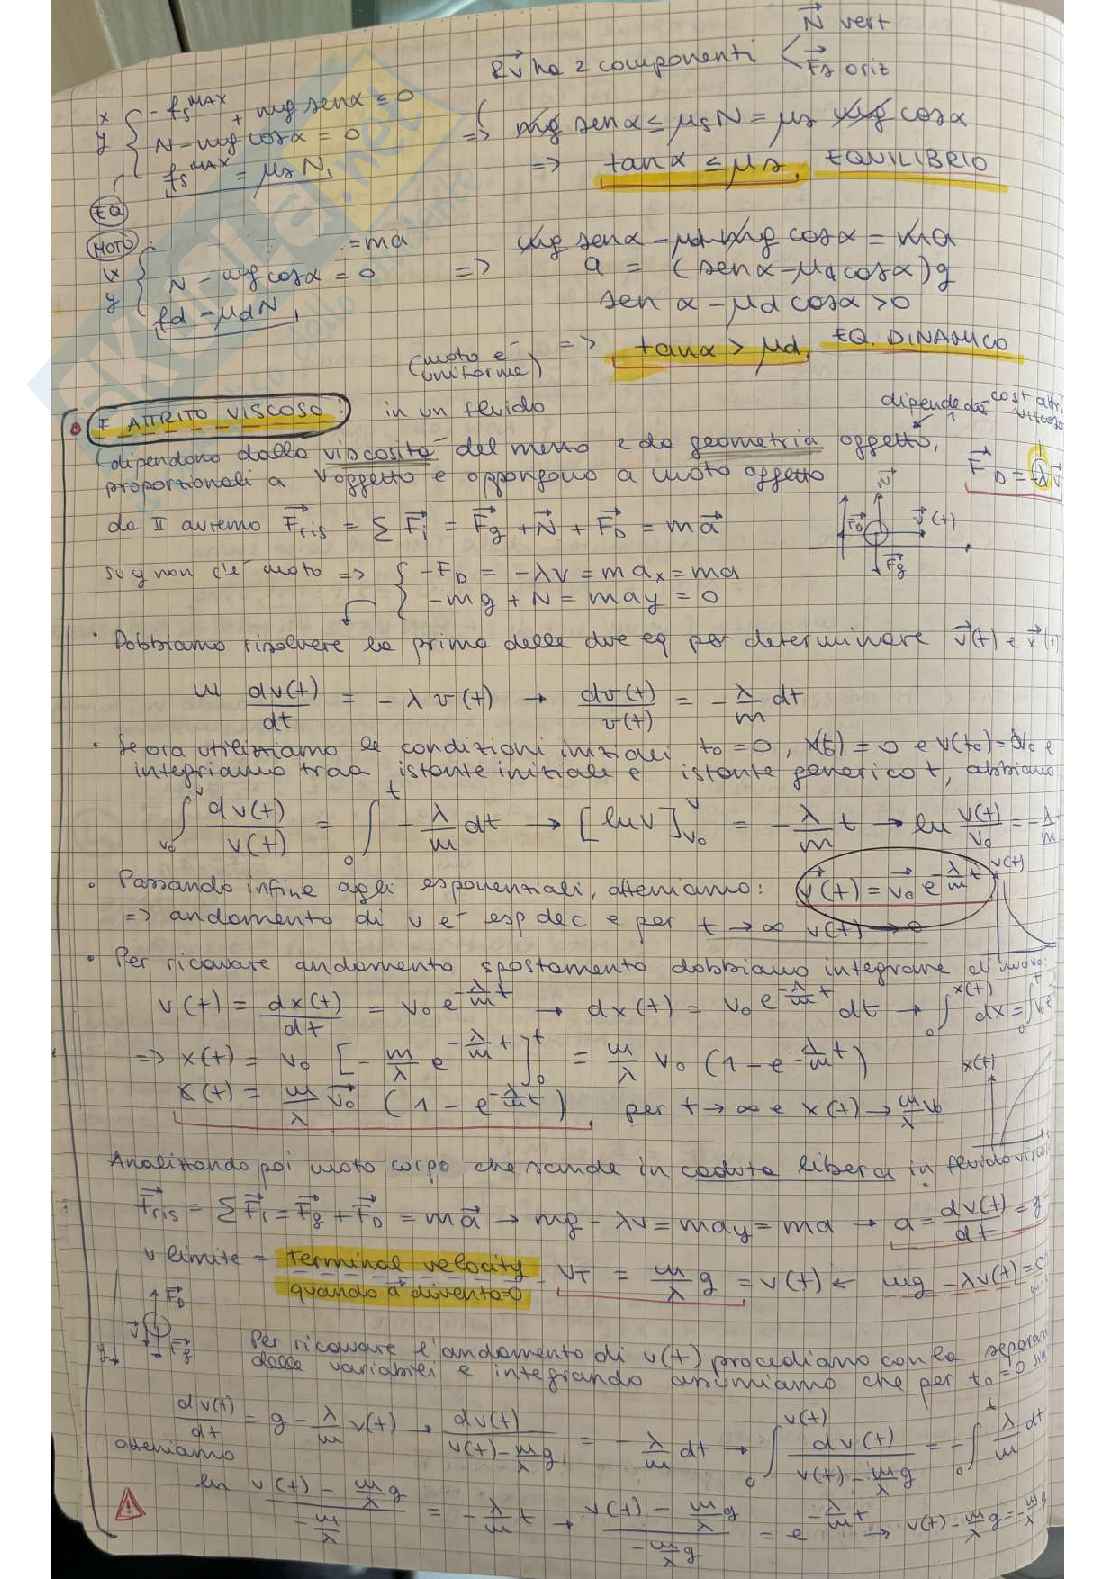 R⃗v ha 2 componenti < N⃗ vert
F⃗s oriz
x { -fs^MAX + mg senα ≤ 0
y { N - mg cosα = 0
fs^MAX = μs N,
=> mg senα ≤ μs N = μs mg cosα
=> tanα ≤ μs, EQUILIBRIO
EQ
MOTO
x { = ma
y { N - mg cosα = 0
fd = μdN,
=> mg senα - μd mg cosα = ma
a = (senα - μd cosα)g
sen α - μd cosα > 0
(moto è uniforme) => tanα > μd, EQ. DINAMICO
F ATTRITO VISCOSO: in un fluido
dipende da cost attr viscoso
(dipendono dalla viscosità del mezzo e da geometria oggetto,
proporzionali a v oggetto e oppongono a moto oggetto
F⃗D = -λv⃗
da II avremo F⃗ris = Σ F⃗i = F⃗g + N⃗ + F⃗D = ma⃗
N⃗ F⃗D v⃗(t) F⃗g
su y non c'è moto => { -FD = -λv = max = ma
{ -mg + N = may = 0
· Dobbiamo risolvere la prima delle due eq per determinare v⃗(t) e
m dv(t)/dt = - λ v(t) → dv(t)/v(t) = - λ/m dt
· Se ora utilizziamo le condizioni iniziali t0=0, x(t0)=0 e v(t0)=v0 e
integriamo tra istante iniziale e istante generico t, abbiamo
∫v0^v dv(t)/v(t) = ∫0^t - λ/m dt → [lnv]v0^v = - λ/m t → ln v(t)/v0 = - λ/m
• Passando infine agli esponenziali, otteniamo: v⃗(t) = v⃗0 e^(-λ/m t)
v(t)
=> andamento di v è esp dec e per t → ∞ v(t) → 0
• Per ricavare andamento spostamento dobbiamo integrare di nuovo:
v(t) = dx(t)/dt = v0 e^(-λ/m t) → dx(t) = v0 e^(-λ/m t) dt → ∫0^x(t) dx = ∫0^t
=> x(t) = v0 [- m/λ e^(-λ/m t)]0^t = m/λ v0 (1 - e^(-λ/m t))
x(t)
x(t) = m/λ v⃗0 (1 - e^(-λ/m t)), per t → ∞ e x(t) → m/λ v0
Analizzando poi moto corpo che scende in caduta libera in fluido
F⃗ris = Σ F⃗i = F⃗g + F⃗D = ma⃗ → mg - λv = may = ma → a = dv(t)/dt = g
v limite = terminal velocity
quando a⃗ diventa=0
vT = m/λ g = v(t) ← mg - λv(t) = 0
F⃗D v⃗ F⃗g y
Per ricavare l'andamento di v(t) procediamo con la separaz
delle variabili e integrando assumiamo che per t0=0
dv(t)/dt = g - λ/m v(t) → dv(t)/(v(t) - m/λ g) = - λ/m dt → ∫0^v(t) dv(t)/(v(t) - m/λ g) = - ∫0^t λ/m dt
otteniamo
ln (v(t) - m/λ g)/(- m/λ) = - λ/m t → (v(t) - m/λ g)/(- m/λ g) = e^(-λ/m t) → v(t) - m/λ g = - m/λ g